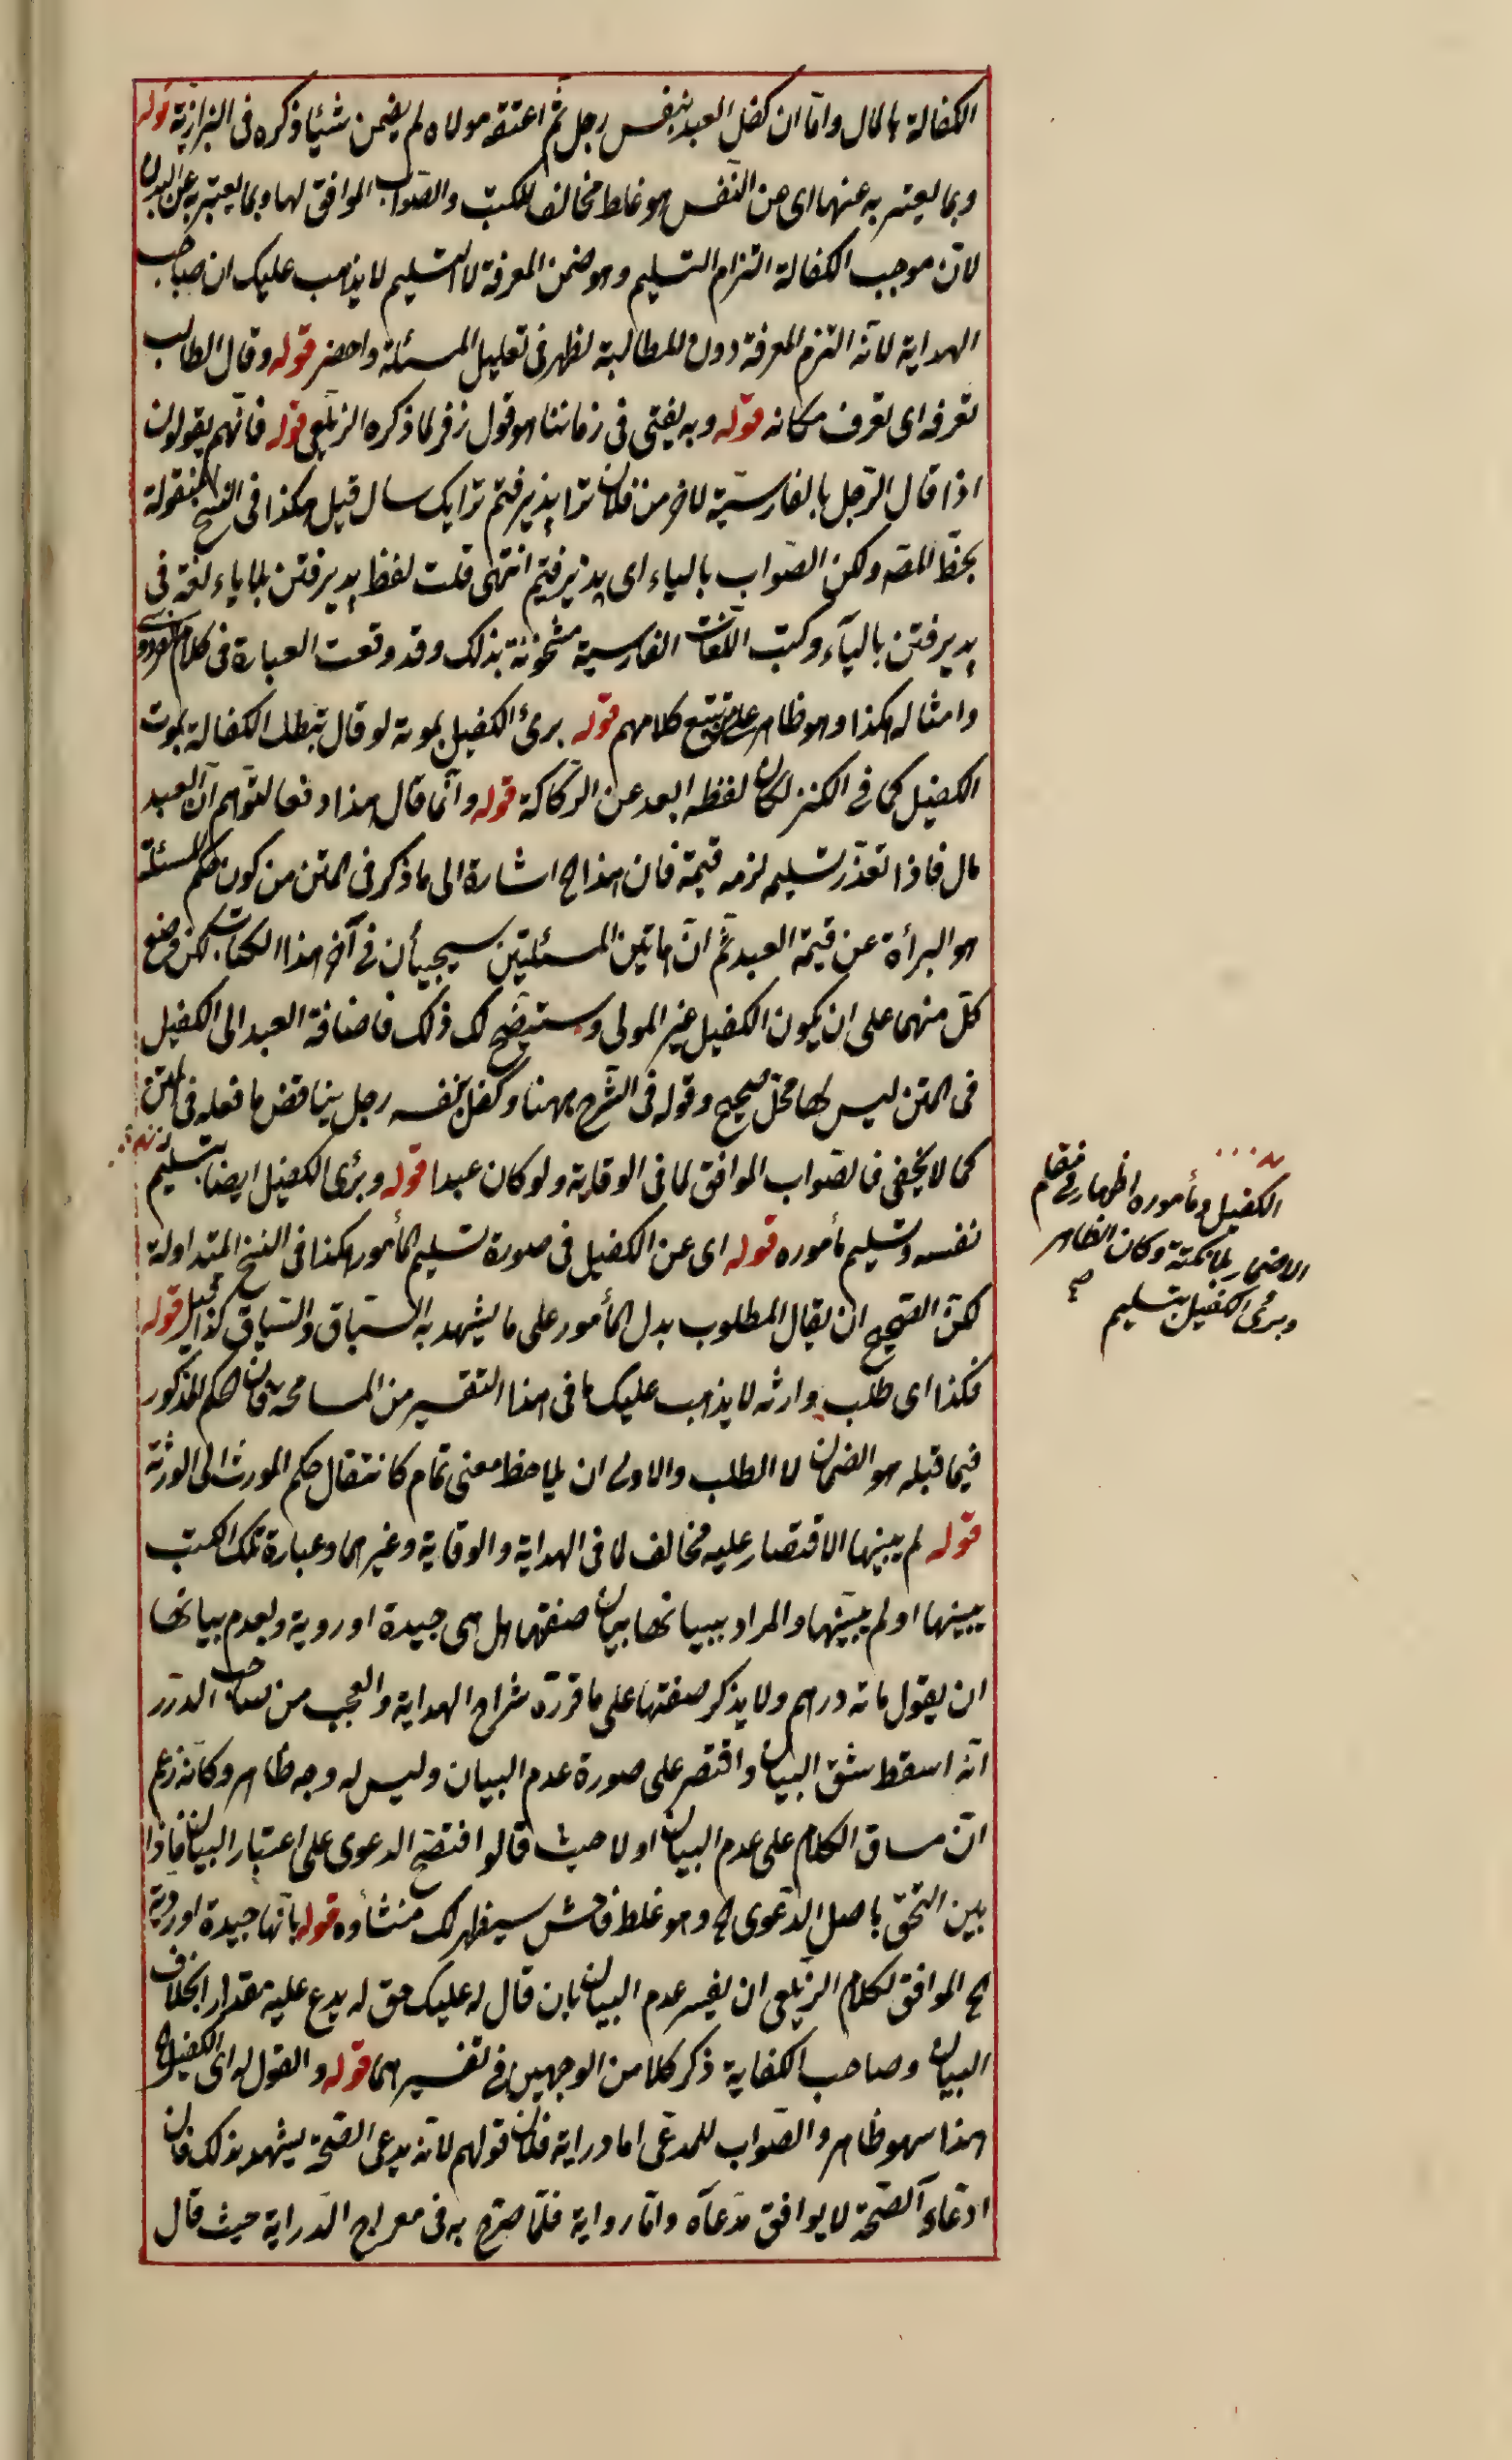 الكفالة بالمال واما ان كفل العبد بنفس رجل ثم اعتقه مولاه لم يضمن شيئا ذكره فى البزازية قوله
وبما يعتبر به عنها اى من النفس هو غلط مخالف للكتب والصواب الموافق لها وبما يعتبر به عن البدن
لان موجب الكفالة التزام التسليم وهو ضمن المعرفة لا التسليم لا يذهب عليك ان صاحب
الهداية لانه التزم المعرفة دون المطالبة لظهر فى تعليل المسئلة واحضر قوله وقال الطالب
تعرفه اى تعرف مكانه قوله وبه يفتى فى زماننا هو قول زفر لما ذكره الزيلعى قوله فانهم يقولون
اذا قال الرجل بالفارسية لاخر من فلان ترا پذيرفتم ترا يک سال قيل هكذا فى النسخ المنقولة
بخط المصه ولكن الصواب بالياء اى پذيرفتيم انتهى قلت لفظ پديرفتن بلا ياء لغة فى
پديرفتن بالياء وكتب اللغات الفارسية مشحونة بذلك وقد وقعت العبارة فى كلام الفردوسى
وامثاله هكذا وهو ظاهر على من تتبع كلامهم قوله برئ الكفيل بموته لو قال تبطل الكفالة بموت
الكفيل كما فى الكنز لكان لفظه ابعد عن الركاكة قوله وانما قال هذا دفعا لتوهم ان العبد
مال فاذا تعذر تسليمه لزمه قيمته فان هذاح اشارة الى ما ذكر فى المتن من كون حكم المسئلة
هو البرأة عن قيمة العبد ثم ان هاتين المسئلتين سيجيأن فى آخر هذا الكتاب لكن وضع
كل منهما على ان يكون الكفيل غير المولى وستيضح لك ذلك فاضافة العبد الى الكفيل
فى المتن ليس لها محل صحيح وقوله فى الشرح ههنا وكفل بنفسه رجل يناقض ما فعله فى المتن
كما لا يخفى فالصواب الموافق لما فى الوقاية ولو كان عبدا قوله وبرئ الكفيل ايضا بتسليم
نفسه وتسليم مأموره قوله اى عن الكفيل فى صورة تسليم المأمور هكذا فى النسخ المتداولة
لكن الصحيح ان يقال المطلوب بدل المأمور على ما يشهد به السباق والسياق كذا قيل قوله
فكذا اى طلب وارثه لا يذهب عليك ما فى هذا التفسير من المسامحة فان الحكم المذكور
فيما قبله هو الضمان لا الطلب والاولى ان يلاحظ معنى تمام كانتقال حكم المورث الى الورثة
قوله لم يبينها الاقتصار عليه مخالف لما فى الهداية والوقاية وغيرهما وعبارة تلك الكتب
يبينها او لم يبينها والمراد ببيانها بيان صفتها هل هى جيدة او ردية وبعدم بيانها
ان يقول مائة درهم ولا يذكر صفتها على ما قرره شراح الهداية والعجب من صاحب الدرر
انه اسقط شق البيان واقتصر على صورة عدم البيان وليس له وجه ظاهر وكانه زعم
ان مساق الكلام على عدم البيان اولا حيث قالوا افتضح الدعوى على اعتبار البيان فاذا
بين التحق باصل الدعوى اه وهو غلط فاحش سيظهر لك منشأوه قوله بانها جيدة او ردية
الح الموافق لكلام الزيلعى ان يفسر عدم البيان بان قال له عليك حق له يدع عليه مقدار بخلاف
البيان وصاحب الكفاية ذكر كلا من الوجهين فى تفسيرهما قوله والقول له اى الكفيل الح
هذا سهو ظاهر والصواب للمدعى اما دراية فلان قولهم لانه يدعى الصحة يشهد بذلك فان
ادعاء الصحة لا يوافق مدعاه واما رواية فلما صرح به فى معراج الدراية حيث قال
الكفيل ومأموره اظهار فى مقام
الاضمار بلا نكتة وكان الظاهر
وبرئ الكفيل بتسليم صح